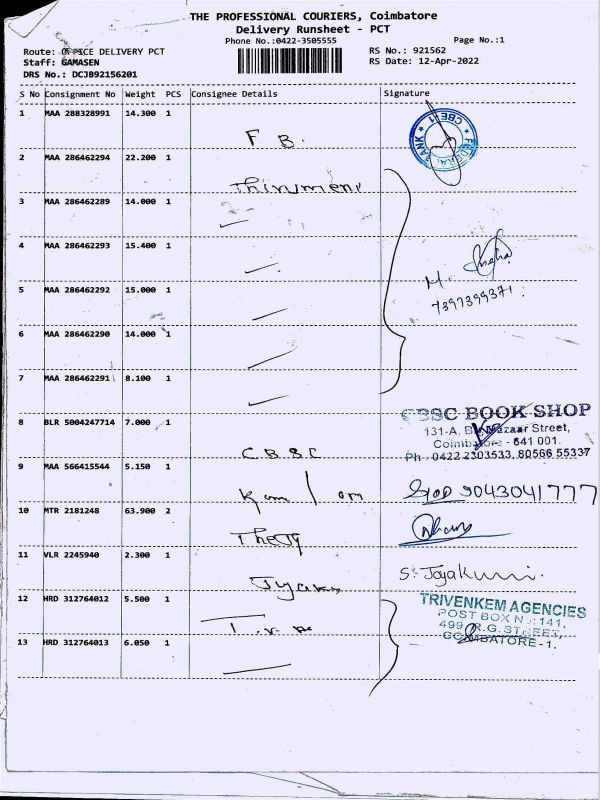 THE PROFESSIONAL COURIERS, Coimbatore
Delivery Runsheet - PCT
Phone No.:0422-3505555
Page No.:1
Route: OFFICE DELIVERY PCT
RS No.: 921562
Staff: GAMASEN
RS Date: 12-Apr-2022
DRS No.: DCJB92156201
S No Consignment No Weight PCS Consignee Details Signature
1 MAA 288328991 14.300 1
F B.
FEDERAL BANK CBE-1
2 MAA 286462294 22.200 1
Thirumeni
3 MAA 286462289 14.000 1
4 MAA 286462293 15.400 1
M.
5 MAA 286462292 15.000 1
7397399371.
6 MAA 286462290 14.000 1
7 MAA 286462291 8.100 1
CBSC BOOK SHOP
8 BLR 5004247714 7.000 1
131-A, Big Bazaar Street,
Coimbatore - 641 001.
C B S C
Ph : 0422 2303533, 80566 55337
9 MAA 566415544 5.150 1
9043041777
10 MTR 2181248 63.900 2
11 VLR 2245940 2.300 1
S. Jayakumi.
12 HRD 312764012 5.500 1
TRIVENKEM AGENCIES
POST BOX No.: 141,
499, R.G. STREET,
COIMBATORE-1.
13 HRD 312764013 6.050 1